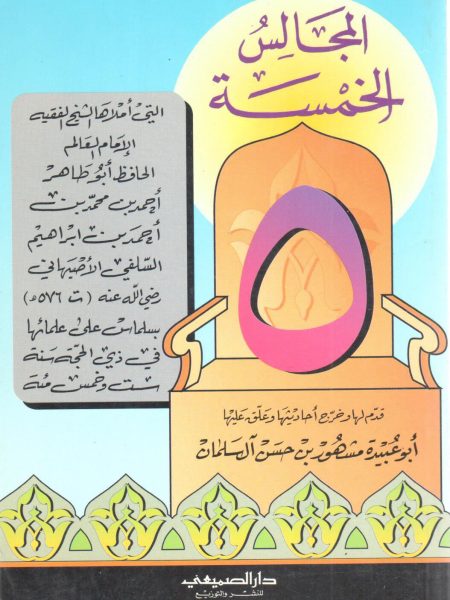 المجالس
الخمسة
التي أملاها الشيخ الفقيه
الإمام العالم
الحافظ أبو طاهر
أحمد بن محمد بن
أحمد بن ابراهيم
السلفي الأصبهاني
رضي الله عنه (ت ٥٧٦ه)
بسلماس على علمائها
في ذي الحجة سنة
ست وخمس مئة
٥
قدّم لها وخرّج أحاديثها وعلّق عليها
أبو عبيدة مشهور بن حسن آل سلمان
دار الصميعي
للنشر والتوزيع